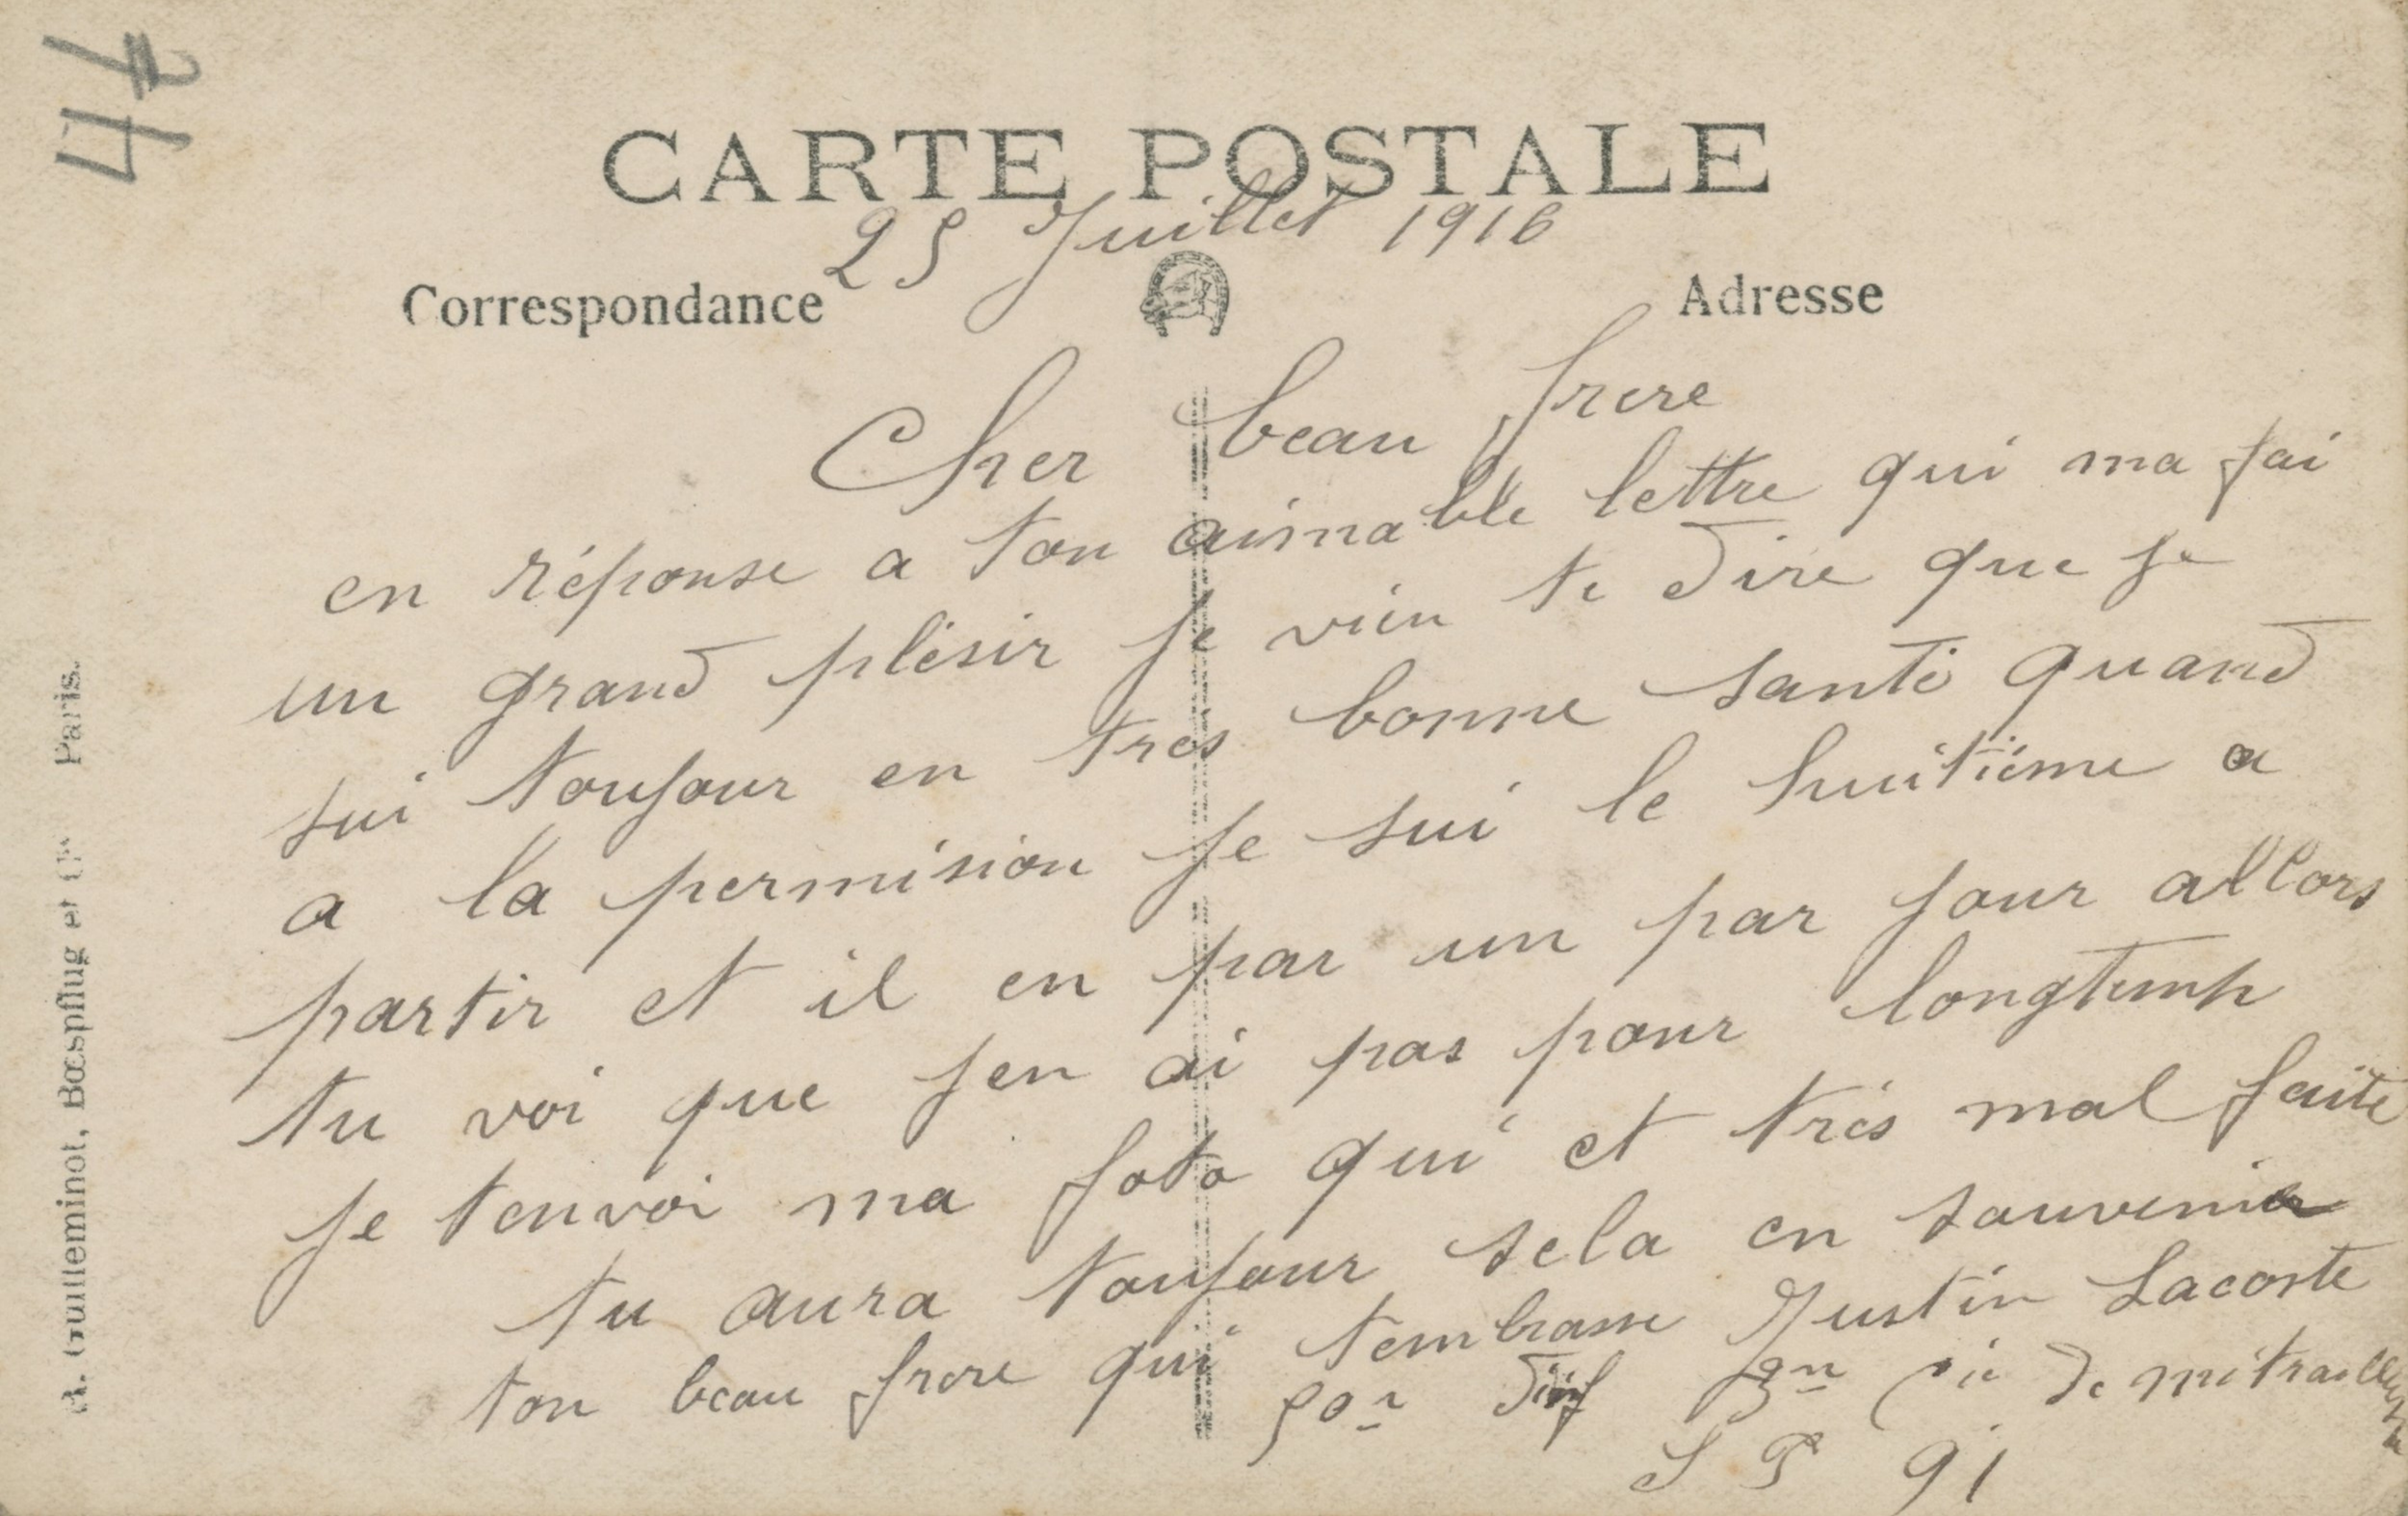 47
CARTE POSTALE
25 Juillet 1916
Correspondance
Adresse
Cher beau frere
en réponse a ton aimable lettre qui ma fai
un grand plésir je vien te dire que je
sui toujour en tres bonne santé quand
a la permision je sui le huitiéme a
partir et il en par un par jour allors
tu voi que jen ai pas pour longtemp
je tenvoi ma foto qui et trés mal faite
tu aura toujour sela en souvenir
ton beau frere qui tembrasse Justin Lacoste
50e dinf 3me Cie de mitrailleuse
S P 91
A. Guilleminot, Bœspflug et Cie Paris.